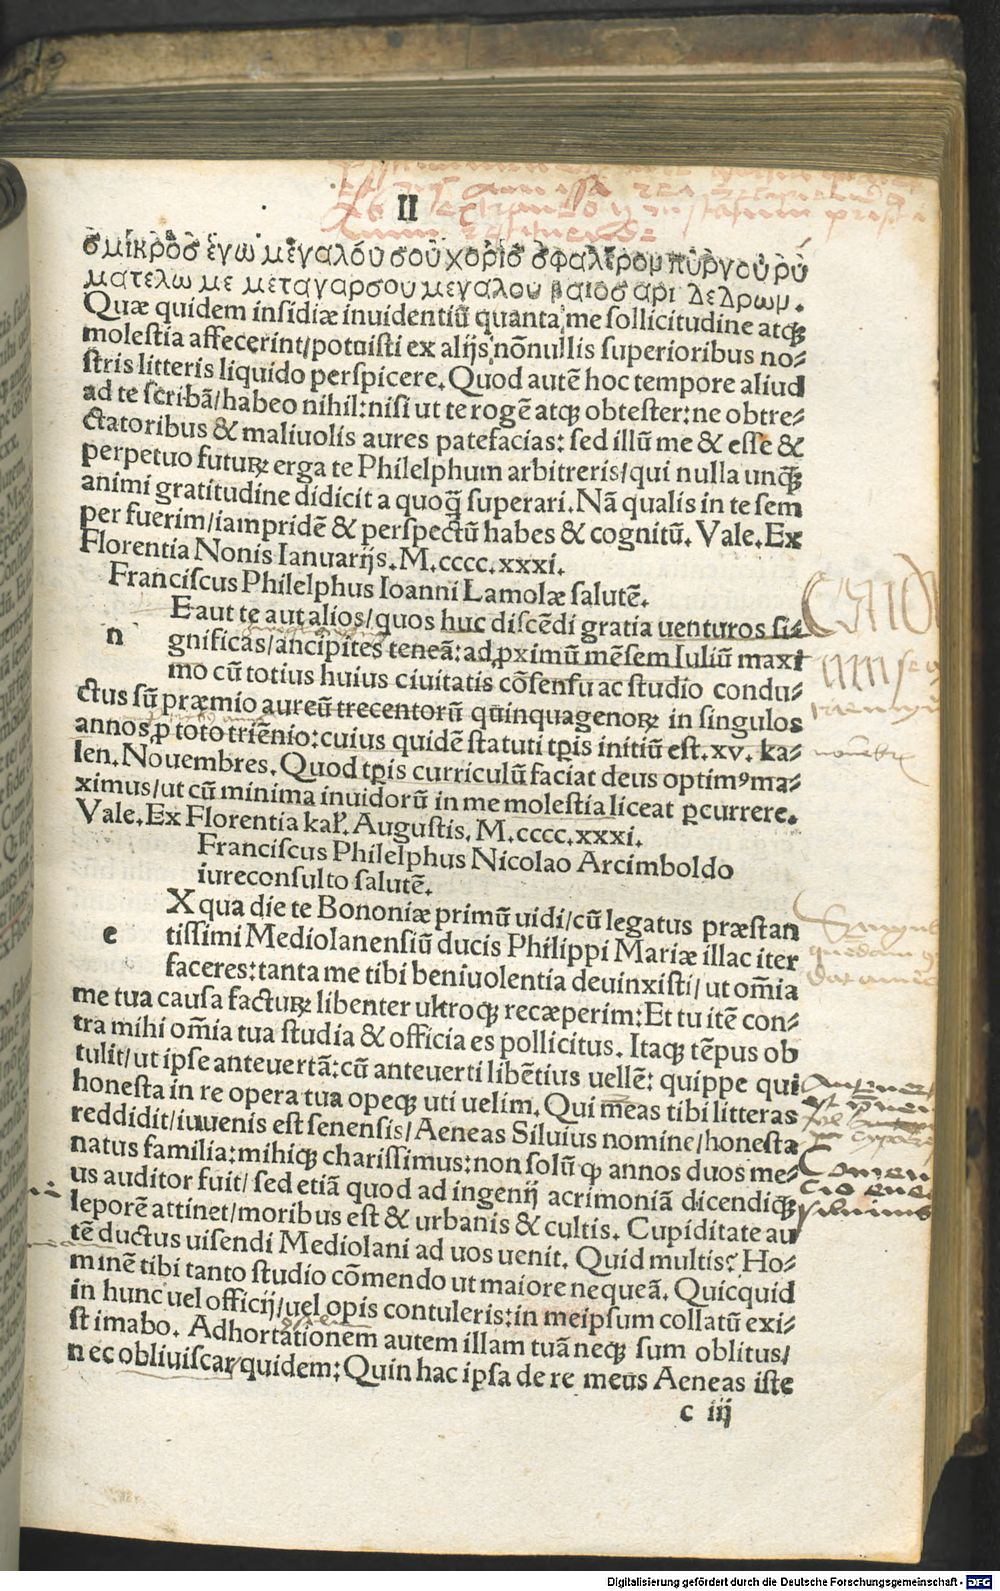 II
σμίκρὸσ ἐγω μεγαλόυ σοὐ χορίσ σφαλἐρομ πὐργοὐ ρὐ
ματελω με μεταγαρσου μεγαλου βαιοσ αρι δεδρωμ.
Quæ quidem insidiæ inuidentiū quanta me sollicitudine atqȝ
molestia affecerint/potuisti ex alijs nōnullis superioribus no⸗
stris litteris liquido perspicere. Quod autē hoc tempore aliud
ad te scribā/habeo nihil: nisi ut te rogē atqȝ obtester: ne obtre⸗
ctatoribus & maliuolis aures patefacias: sed illū me & esse &
perpetuo futuꝝ erga te Philelphum arbitreris/qui nulla unq̄ȝ
animi gratitudine didicit a quoq̄ superari. Nā qualis in te sem
per fuerim/iampridē & perspectū habes & cognitū. Vale. Ex
Florentia Nonis Ianuarijs. M.cccc.xxxi.
Franciscus Philelphus Ioanni Lamolæ salutē.
E aut te aut alios/quos huc discēdi gratia uenturos si⸗
n gnificas/ancipites teneā: ad ꝓximū mēsem Iuliū maxi
mo cū totius huius ciuitatis cōsensu ac studio condu⸗
ctus sū præmio aureū trecentorū quinquagenoꝝ in singulos
annos ꝓ toto triēnio: cuius quidē statuti tꝑis initiū est .xv. ka⸗
len. Nouembres. Quod tꝑis curriculū faciat deus optimꝰ ma⸗
ximus/ut cū minima inuidorū in me molestia liceat ꝑcurrere.
Vale. Ex Florentia kal. Augustis. M.cccc.xxxi.
Franciscus Philelphus Nicolao Arcimboldo
iureconsulto salutē.
X qua die te Bononiæ primū uidi/cū legatus præstan
e tissimi Mediolanensiū ducis Philippi Mariæ illac iter
faceres: tanta me tibi beniuolentia deuinxisti/ut om̄ia
me tua causa facturꝝ libenter ultroqȝ recæperim: Et tu itē con⸗
tra mihi om̄ia tua studia & officia es pollicitus. Itaqȝ tēpus ob
tulit/ut ipse anteuertā: cū anteuerti libētius uellē: quippe qui
honesta in re opera tua opeqȝ uti uelim. Qui meas tibi litteras
reddidit/iuuenis est senensis/Aeneas Siluius nomine/honesta
natus familia: mihiqȝ charissimus: non solū ꝙ annos duos me⸗
us auditor fuit/ sed etiā quod ad ingenij acrimoniā dicendiqȝ
leporē attinet/moribus est & urbanis & cultis. Cupiditate au
tē ductus uisendi Mediolani ad uos uenit. Quid multis? Ho⸗
minē tibi tanto studio cōmendo ut maiore nequeā. Quicquid
in hunc uel officij/uel opis contuleris: in meipsum collatū exi⸗
stimabo. Adhortationem autem illam tuā neqȝ sum oblitus/
nec obliuiscar quidem: Quin hac ipsa de re meus Aeneas iste
c iij
Digitalisierung gefördert durch die Deutsche Forschungsgemeinschaft - DFG